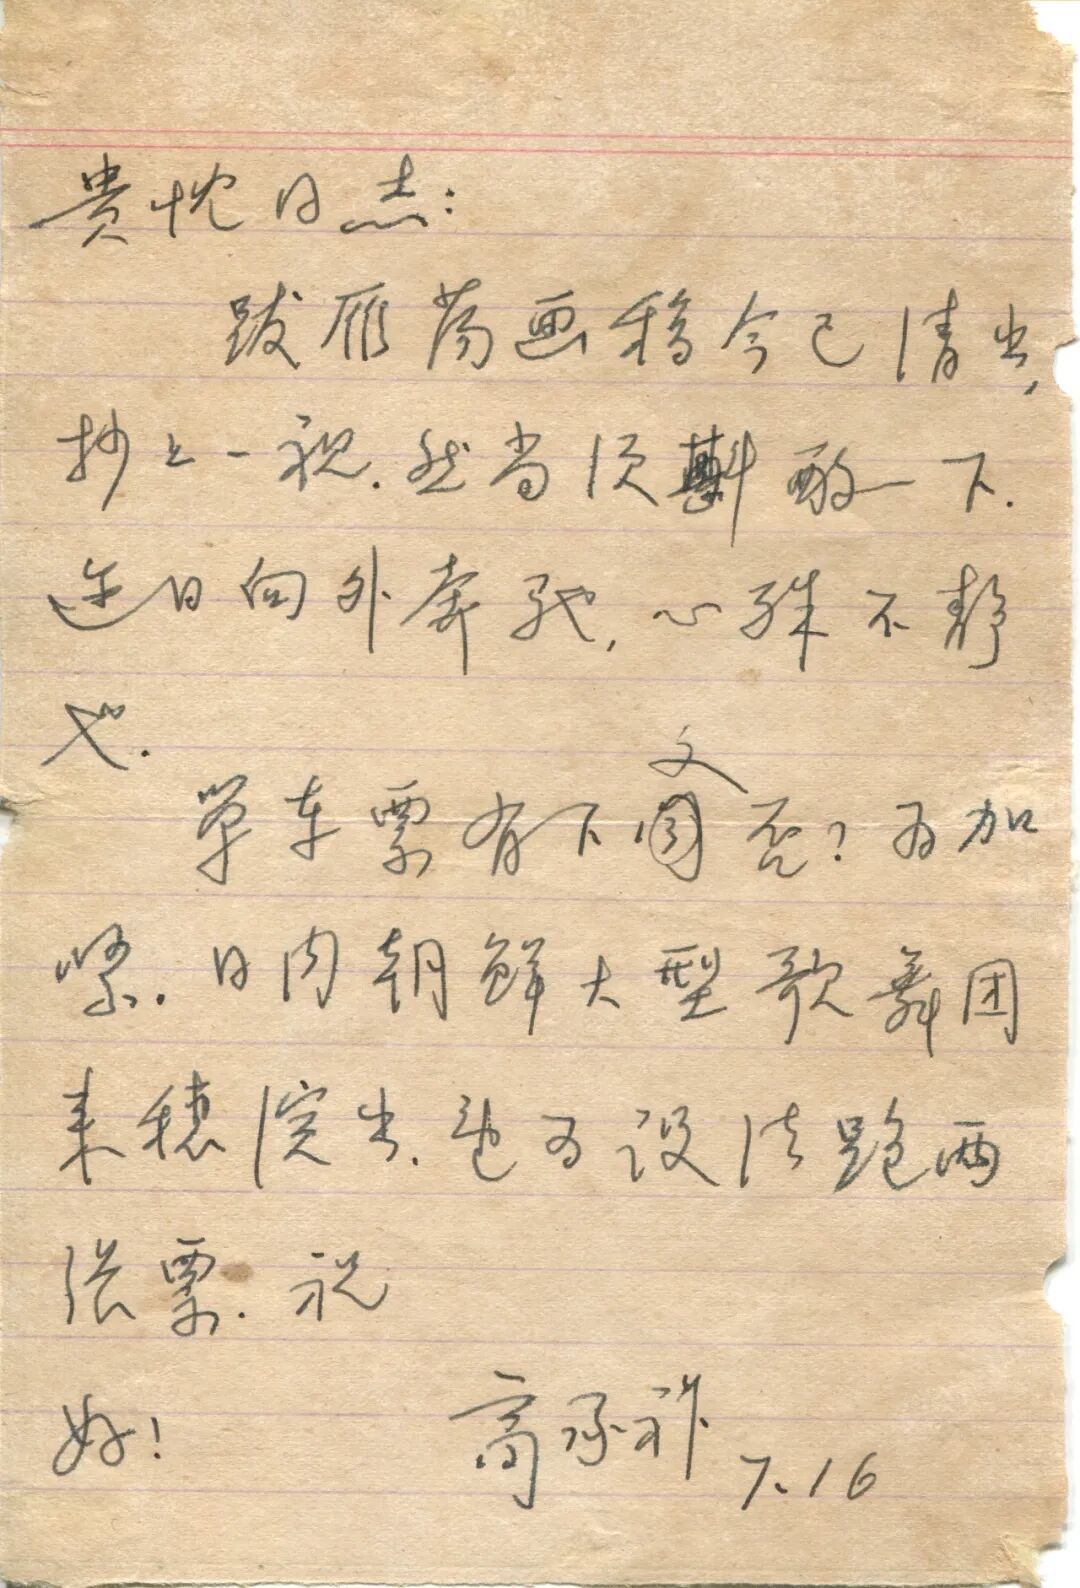 贵忱同志:
跋雁荡画稿今已清出,
抄上一视.然尚须斟酌一下.
连日向外奔驰,心殊不静
也.
单车票有下文否?加
紧.日内朝鲜大型歌舞团
来穗演出,设法跑两
张票.祝
好! 商承祚 7.16